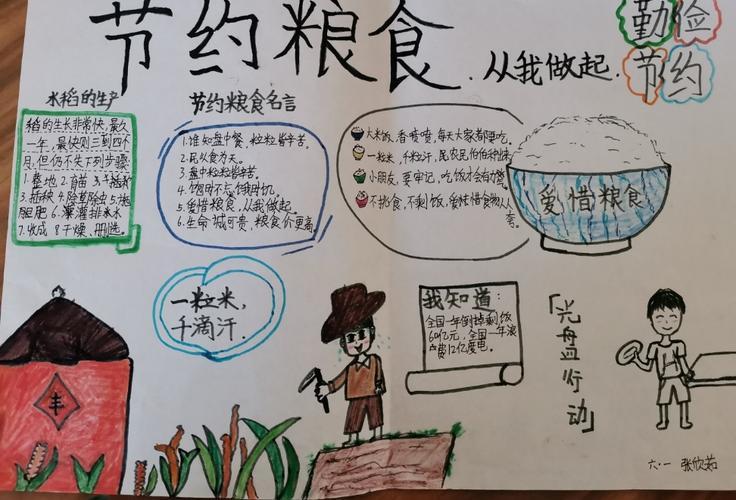 节约粮食
从我做起.
勤俭
节约
水稻的生产
稻的生长非常快,最久
一年,最快则三到四个
月,但仍不失下列步骤:
1.整地 2.育苗 3.
3.插秧 4.除草除虫 5.施
肥 6.灌溉排水
7.收成 8.干燥、筛选。
节约粮食名言
1.谁知盘中餐,粒粒皆辛苦。
2.民以食为天。
3.盘中粒粒皆辛苦。
4.饱时不忘饿时饥。
5.爱惜粮食,从我做起。
6.生命诚可贵,粮食价更高。
大米饭,香喷喷,每天大家都要吃。
一粒米,千粒汗,农民伯伯种
小朋友,要牢记,吃饭才会有力
不挑食,不剩饭,爱惜食物人人
夸。
爱惜粮食
一粒米,
千滴汗.
我知道:
全国一年倒掉剩饭
60亿元,全国一年浪
费12亿度电。
「光盘行动」
丰
六.一 张欣茹